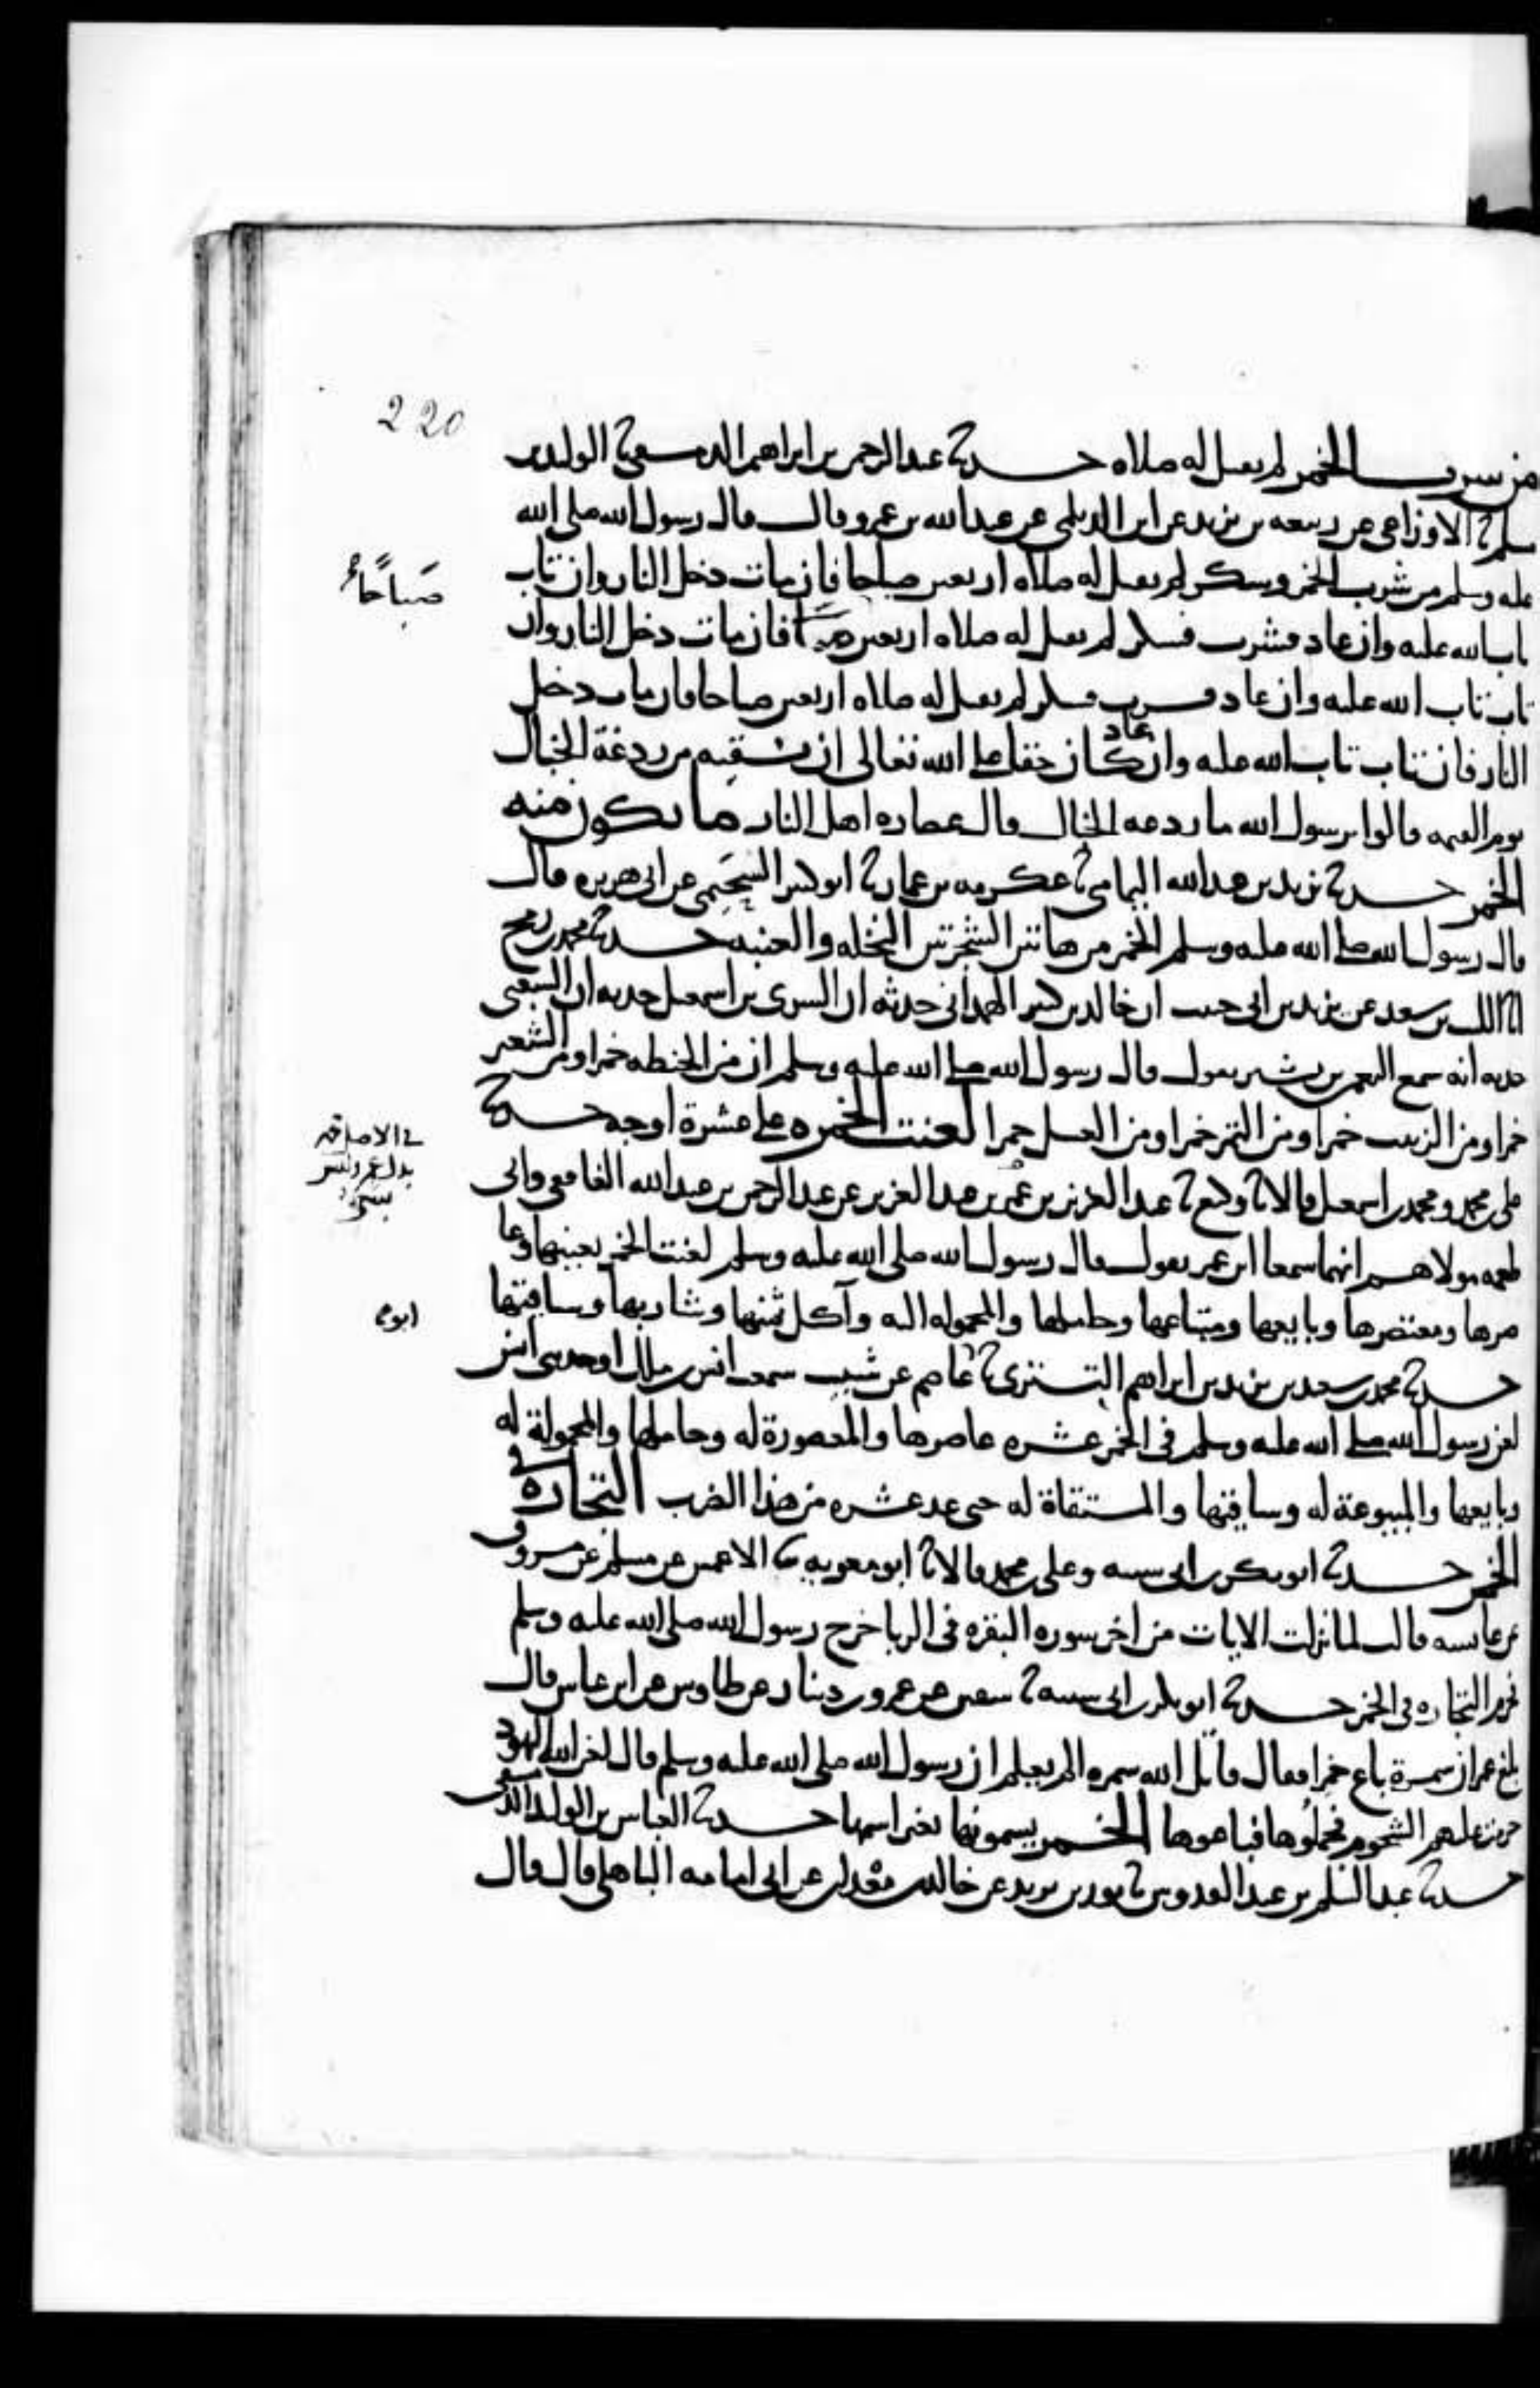 220
من شرب الخمر لم يقبل له صلاه حدثنا عبد الرحمن بن ابراهيم الدمشقي ثنا الوليد بن
مسلم ثنا الاوزاعي عن ربيعه بن يزيد عن ابن الديلمي عن عبد الله بن عمرو قال قال رسول الله صلى الله
عليه وسلم من شرب الخمر وسكر لم يقبل له صلاه اربعين صباحا فان مات دخل النار وان تاب
صباحًا
تاب الله عليه وان عاد فشرب فسكر لم يقبل له صلاه اربعين فان مات دخل النار وان
تاب تاب الله عليه وان عاد فشرب فسكر لم يقبل له صلاه اربعين صباحا فان مات دخل
النار فان تاب تاب الله عليه وان عاد كان حقا على الله تعالى ان يسقيه من ردغة الخبال
يوم القيمه قالوا يرسول الله ما ردغه الخبال قال عصاره اهل النار ما يكون منه
الخمر حدثنا يزيد بن عبد الله اليمامي ثنا عكرمه بن عمار ثنا ابو كثير السحيمي عن ابي هريره قال
قال رسول الله صلى الله عليه وسلم الخمر من هاتين الشجرتين النخله والعنبه حدثنا محمد بن رمح
انا الليث بن سعد عن يزيد بن ابي حبيب ان خالد بن كثير الهمداني حدثه ان السري بن اسمعيل حدثه ان الشعبي
حدثه انه سمع النعمن بن بشير يقول قال رسول الله صلى الله عليه وسلم ان من الحنطه خمرا ومن الشعير
خمرا ومن الزبيب خمرا ومن التمر خمرا ومن العسل خمرا لعنت الخمره على عشرة اوجه حدثنا
في الاصل
علي بن محمد ومحمد بن اسمعيل قالا ثنا وكيع ثنا عبد العزيز بن عمر بن عبد العزيز عن عبد الرحمن بن عبد الله الغافقي وابي
طعمه مولاهم انهما سمعا ابن عمر يقول قال رسول الله صلى الله عليه وسلم لعنت الخمر بعينها وعا
صرها ومعتصرها وبايعها ومبتاعها وحاملها والمحموله اليه وآكل ثمنها وشاربها وساقيها
حدثنا محمد بن سعيد بن يزيد بن ابراهيم التستري ثنا عاصم عن شبيب سمعت انس بن ملك او حدثني انس
لعن رسول الله صلى الله عليه وسلم في الخمر عشره عاصرها والمعصورة له وحاملها والمحمولة له
وبايعها والمبيوعة له وساقيها والمستقاة له حتى عد عشره من هذا الضرب التجاره في
الخمر حدثنا ابو بكر بن ابي شيبه وعلي بن محمد قالا ثنا ابو معويه ثنا الاعمش عن مسلم عن مسروق
عن عائشه قالت لما نزلت الايات من اخر سوره البقره في الربا خرج رسول الله صلى الله عليه وسلم
فحرم التجاره في الخمر حدثنا ابو بكر بن ابي شيبه ثنا سفين عن عمرو بن دينار عن طاوس عن ابن عباس قال
بلغ عمر ان سمرة باع خمرا فقال قاتل الله سمره الم يعلم ان رسول الله صلى الله عليه وسلم قال لعن الله اليهود
حرمت عليهم الشحوم فجملوها فباعوها الخمر يسمونها بغير اسمها حدثنا العباس بن الوليد الدمشقي
حدثنا عبد السلم بن عبد القدوس ثنا ثور بن يزيد عن خالد بن معدان عن ابي امامه الباهلي قال قال